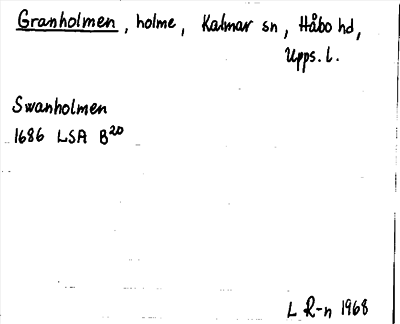 Granholmen, holme, Kalmar sn, Håbo hd,
Upps. l.
Swanholmen
1686 LSA B20
L R-n 1968